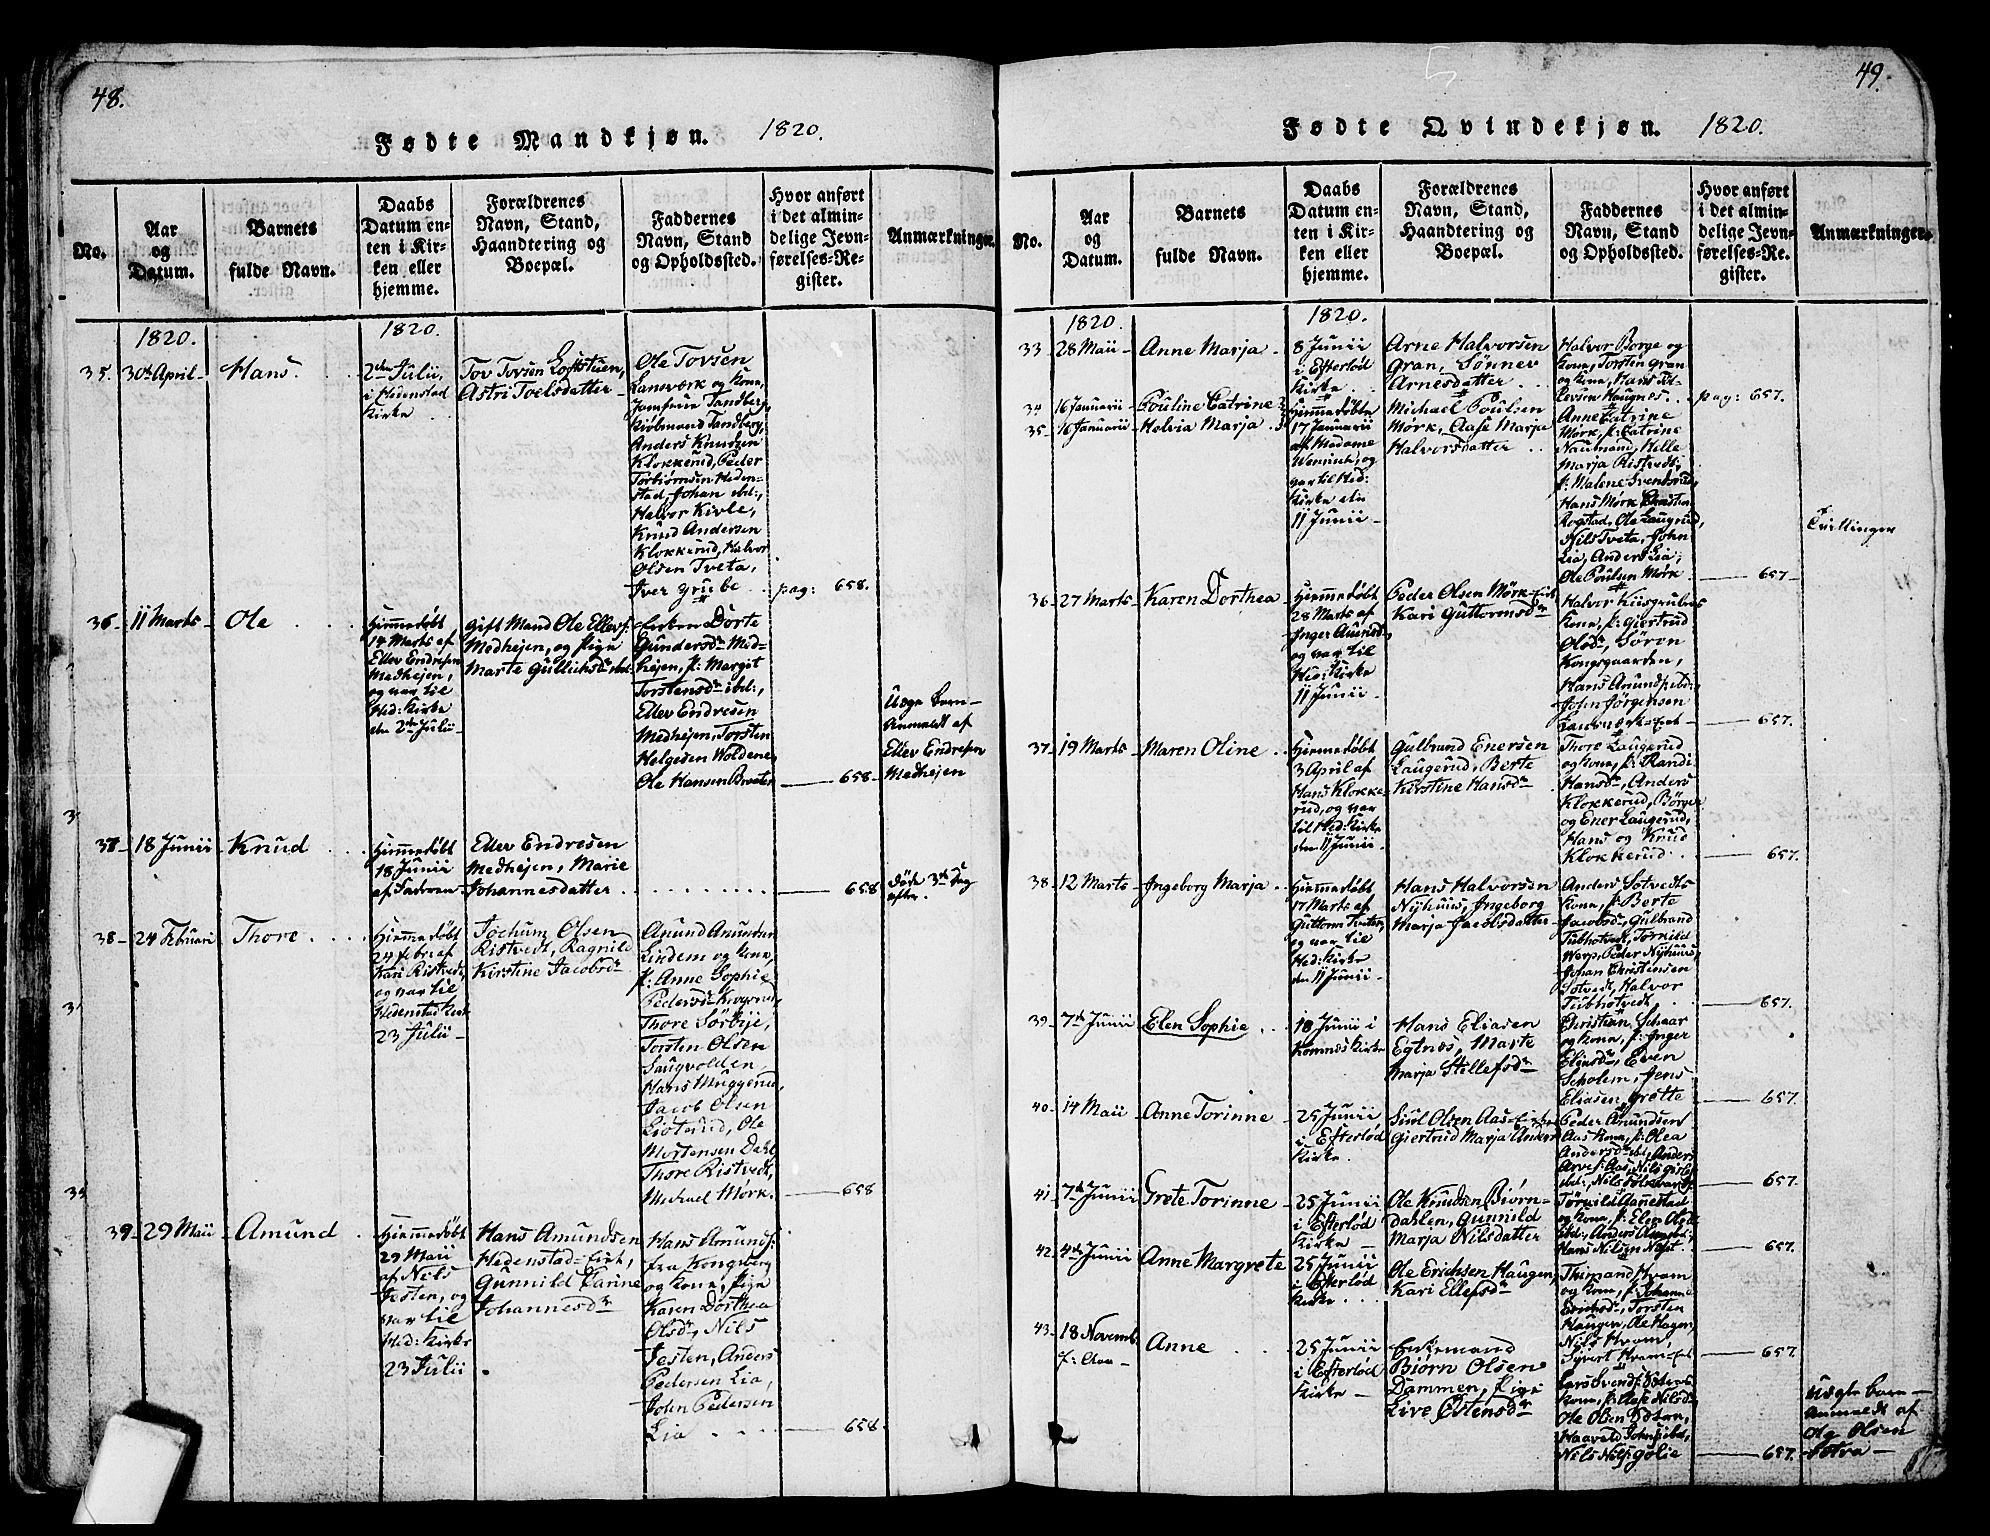 48.
Fødte Mandkjøn. 1820.
No.
Aar
og
Datum.
Barnets
fulde Navn.
Daabs
Datum en-
ten i Kir-
ken eller
hjemme.
Forældrenes
Navn, Stand,
Haandtering og
Boepæl.
Faddernes
Navn, Stand
og Opholdssted.
Hvor anført
i det almin-
delige Jevn-
førelses-Re-
gister.
Anmærkninger.
1820.
1820.
35. 30te April Hans.
2den Julii,
i Hedenstad
Kirke
Tov Tovsen Loftstuen,
Astri Toelsdatter
Ole Tovsen
Lansværk og Kone,
Jomfrue Tandberg,
Kiøbmand Tandberg,
Anders Knudsen
Klokkerud, Peder
Torbiørnsen Heden-
stad, Johan ibd:,
Halvor Kivle,
Knud Andersen
Klokkerud, Halvor
Olsen Tveta,
Iver Grube
pag: 658.
36 11 Marts Ole
Hiemmedøbt
14 Marts af
Ellev Endresen
Medhejen,
og var til
Hed: Kirke
den 2de Julii
Gift Mand Ole Ellevs:
Medhejen, og Pige
Marte Gulliksdr ibd.
Enken Dorte
Gundersdr Med-
hejen, p: Margit
Torstensdr ibd:,
Ellev Endresen
Medhejen, Torsten
Helgesen Woldene,
Ole Hansen Braaten
658
Uægte Barn
Anmeldt af
Ellev Endresen
Medhejen
37 18 Junii Knud
Hiemmedøbt
18 Junii
af Faderen
Ellev Endresen
Medhejen, Marie
Johannesdatter
658
Døde 3de Dag
efter.
38 24 Februari Thore
Hiemmedøbt
24 Febr: af
Kari Ristvedt,
og var til
Hedenstad Kirk
23 Julii
Jochum Olsen
Ristvedt, Ragnild
Kirstine Jacobsdr
Amund Amundsen
Lindem og Kone,
p: Anne Sophie
Pedersdr
Thore Sørbije,
Torsten Olsen
Saugvolden
Hans Muggerud,
Jacob Olsen
Lioterud, Ole
Mortensen Dahl,
Thore Ristvedt,
Michael Mørk.
658
39 29 Maii Amund
Hiemmedøbt
29 Maii
af Nils
Jesten, og
var til
Hed: Kirke
23 Julii
Hans Amundsen
Hedenstad-Eirk,
Gunnild Karine
Johannesdr
Hans Amunds:
fra Kongsberg
og Kone, Pige
Karen Dorthea
Olsdr, Nils
Jesten, Anders
Pedersen Lia,
John Pedersen
Lia
658.
49.
Fødte Qvindekjøn. 1820.
No.
Aar
og
Datum.
Barnets
fulde Navn.
Daabs
Datum en-
ten i Kir-
ken eller
hjemme.
Forældrenes
Navn, Stand,
Haandtering og
Boepæl.
Faddernes
Navn, Stand
og Opholdssted.
Hvor anført
i det almin-
delige Jevn-
førelses-Re-
gister.
Anmærkninger.
1820.
1820.
33 28 Maii Anne Marja
8 Junii
i Efterlød
Kirke
Arne Halvorsen
Gran, Sønnev
Arnesdatter
Halvor Borge og
Kone, Torsten Gran
og Kone, Hans
Haugnes
pag: 657.
34 16 Januarii Pouline Catrine
35 16 Januarii Helvia Marja
Hiemmedøbte
17 Januarii
af Madame
og
var til Hed:
Kirke den
11 Junii
Michael Poulsen
Mørk, Aase Marja
Halvorsdatter
Anne Catrine
Mørk, p: Catrine
Naumand, Helle
Marja Ristvedt,
p: Malene Svendsrud,
Hans Mørk,
Rogstad, Ole Laugrud,
Nils Tveta, John
Lia, Anders Lia,
Ole Poulsen Mørk
657
Tvillinger
36 27 Marts Karen Dorthea
Hiemmedøbt
28 Marts af
Inger Amunds
og var til
Hed: Kirke
11 Junii
Peder Olsen Mørk-Eirk
Kari Guttormsdr
Halvor Kiisgrubes
Kone, p: Giertrud
Olsdr, Søren
Kongsgaarden,
Hans Amunds: ibd:,
John Jørgensen
657.
37 19 Marts Maren Oline
Hiemmedøbt
3 April af
Hans Klokke
rud, og var
til Hed: Kirke
den 11 Junii
Gulbrand Enersen
Laugerud, Berte
Kirstine Hansdr
Thore Laugerud
og Kone, p: Randi
Hansdr, Anders
Klokkerud, Børger
og Ener Laugerud,
Hans og Knud
Klokkerud
657.
38 12 Marts Ingeborg Marja
Hiemmedøbt
17 Marts af
Guttorm Tveten,
og var til
Hed: Kirke
den 11 Junii
Hans Halvorsen
Nyhuus, Ingeborg
Marja Jacobsdatter
Anders Sotvedts
Kone, p: Berte
Jacobsdr, Gulbrand
Tubhotvedt, Torkild
Werp, Peder Nyhuus,
Johan Christensen
Sotvedt, Halvor
Tubhotvedt,
657.
39 7de Junii Elen Sophie
18 Junii i
Komnes Kirke
Hans Eliasen
Egtnes, Marte
Marja Stillefsdr
Christian Schaar
og Kone, p: Inger
Eliasdr, Even
Scholem, Jens
Eliasen Grøtte
657.
40 14 Maii Anne Torinne
25 Junii
i Efterlød
Kirke.
Siul Olsen Aas-Eirke
Giertrud Marja Anders
Peder Amundsen
Aas Kone, p: Olea
Andersdr ibd, Anders
657
41 7de Junii Grete Torinne
25 Junii
i Efterlød
Kirke
Ole Knudsen Biørn-
dahlen, Gunnild
Marja Nilsdatter
Tørkild Aannestad
og Kone, p: Elen Olsdr
ibd:, Anders
Hans Nilsen
657.
42 4de Junii Anne Margrete
25 Junii
i Efterlød
Kirke
Ole Erichsen Haugen,
Kari Ellefsdr
Thimand Hvam
og Kone, p: Johanne
Erichsdr, Torsten
Haugen, Ole Hagen,
Nils Hvam,
Sivert Hvam-Eirk
657
43 18 Novemb.
f: Aar
Anne
25 Junii
i Efterlød
Kirke
Enkemand
Biørn Olsen
Dammen, Pige
Live Østensdr
Kone, p: Aase Nilsdr
Ole Olsen
Haavald Johns: ibd,
Nils Nils: Golie
657.
Uægte Barn
Anmeldt af
Ole Olsen